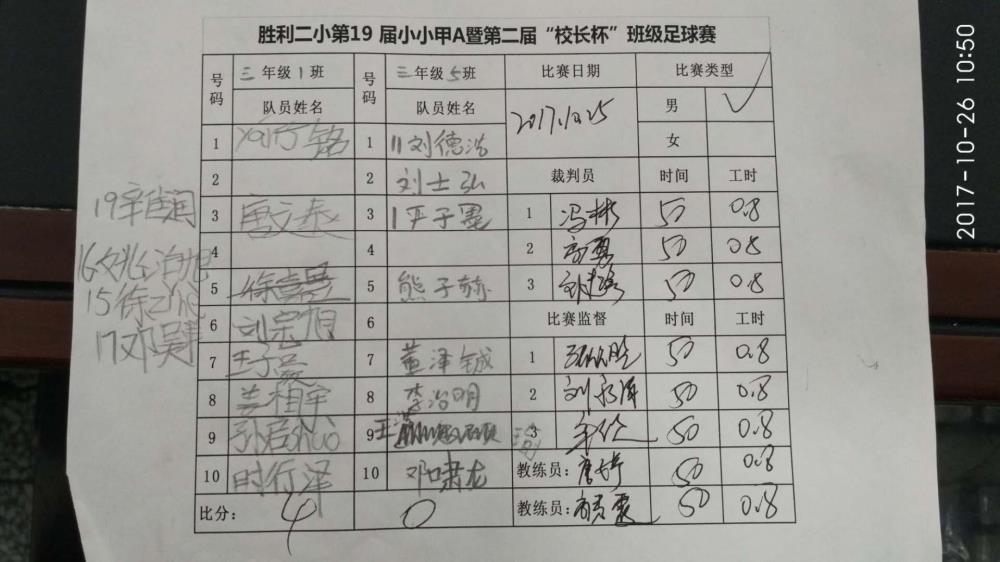 胜利二小第19 届小小甲A暨第二届“校长杯”班级足球赛
号码 三年级1班 号码 三年级5班 比赛日期 比赛类型
队员姓名 队员姓名 2017.10.25 男 ✓
1 铭 1 11刘德浩 女
2 2 刘士弘 裁判员 时间 工时
19辛
3 唐文泰 3 1严子墨 1 冯彬 50 0.8
4 4 2 勇 50 0.8
16姚泊旭
5 5 熊子赫 3 50 0.8
15徐
6 刘宗旭 6 比赛监督 时间 工时
17邓昊
7 7 董泽铖 1 50 0.8
8 8 李冶明 2 刘 50 0.8
9 孙君shuo 9 王 3 50 0.8
10 时行泽 10 邓啸龙 教练员: 唐 50 0.8
比分: 4 0 教练员: 50 0.8
2017-10-26 10:50